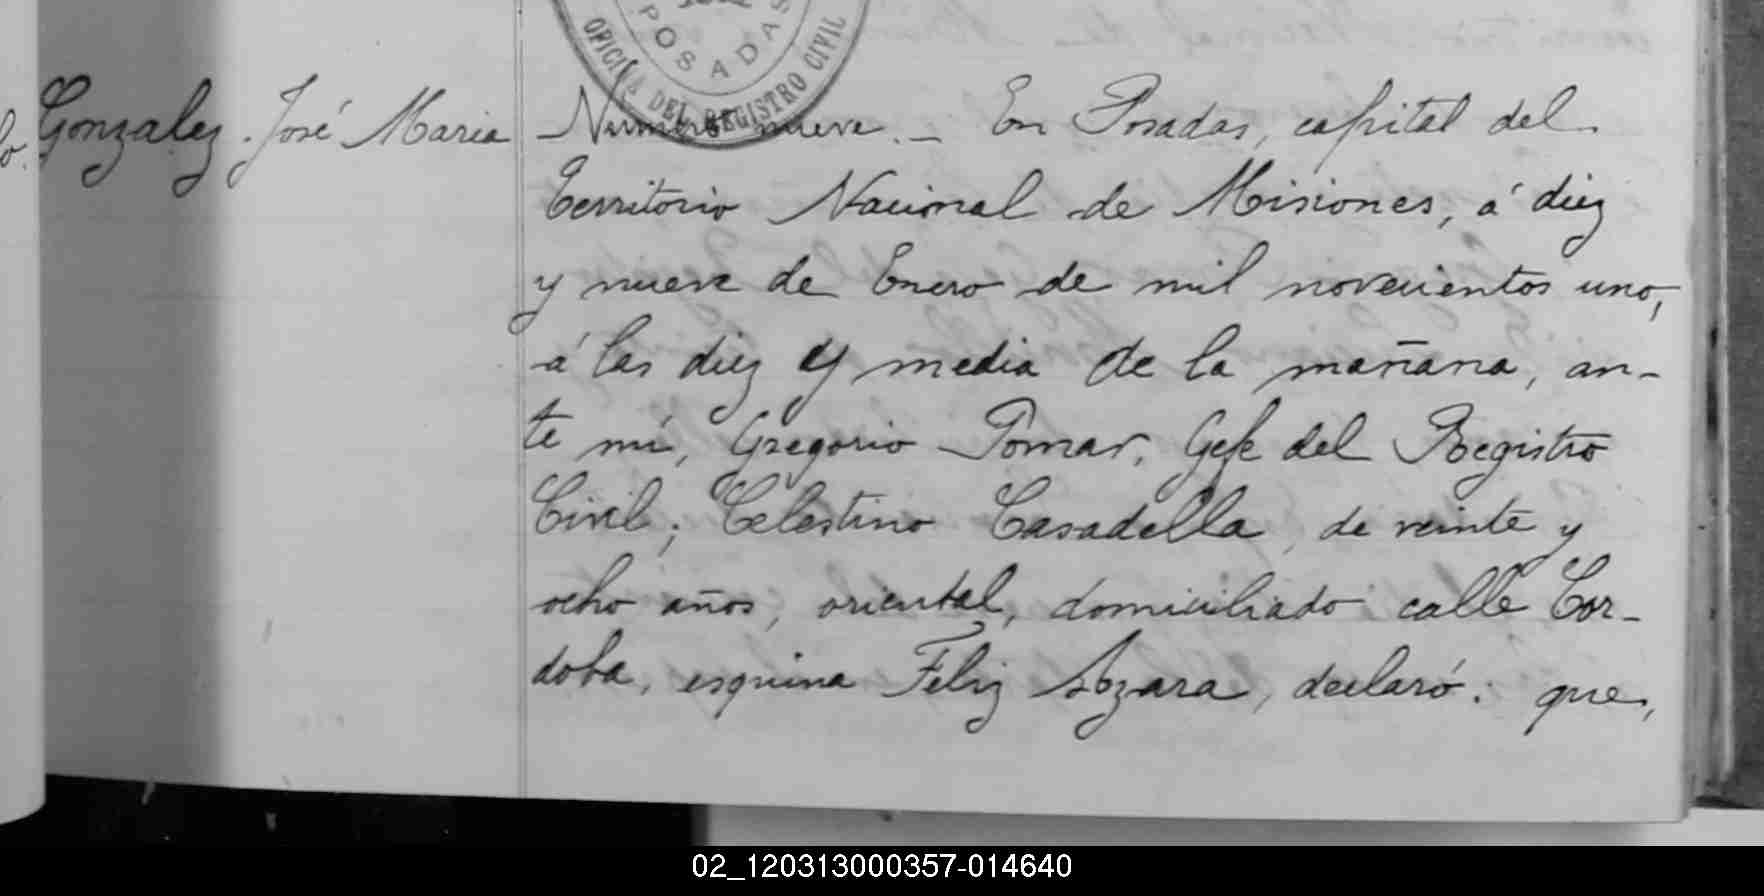 POSADAS
OFICINA DEL REGISTRO CIVIL
Gonzalez. José Maria
Número nueve. — En Posadas, capital del
Territorio Nacional de Misiones, á diez
y nueve de Enero de mil novecientos uno,
á las diez y media de la mañana, an-
te mí, Gregorio Pomar, Gefe del Registro
Civil; Celestino Casadella, de veinte y
ocho años, oriental, domiciliado calle Cor-
doba, esquina Feliz Azara, declaró: que,
02_120313000357-014640